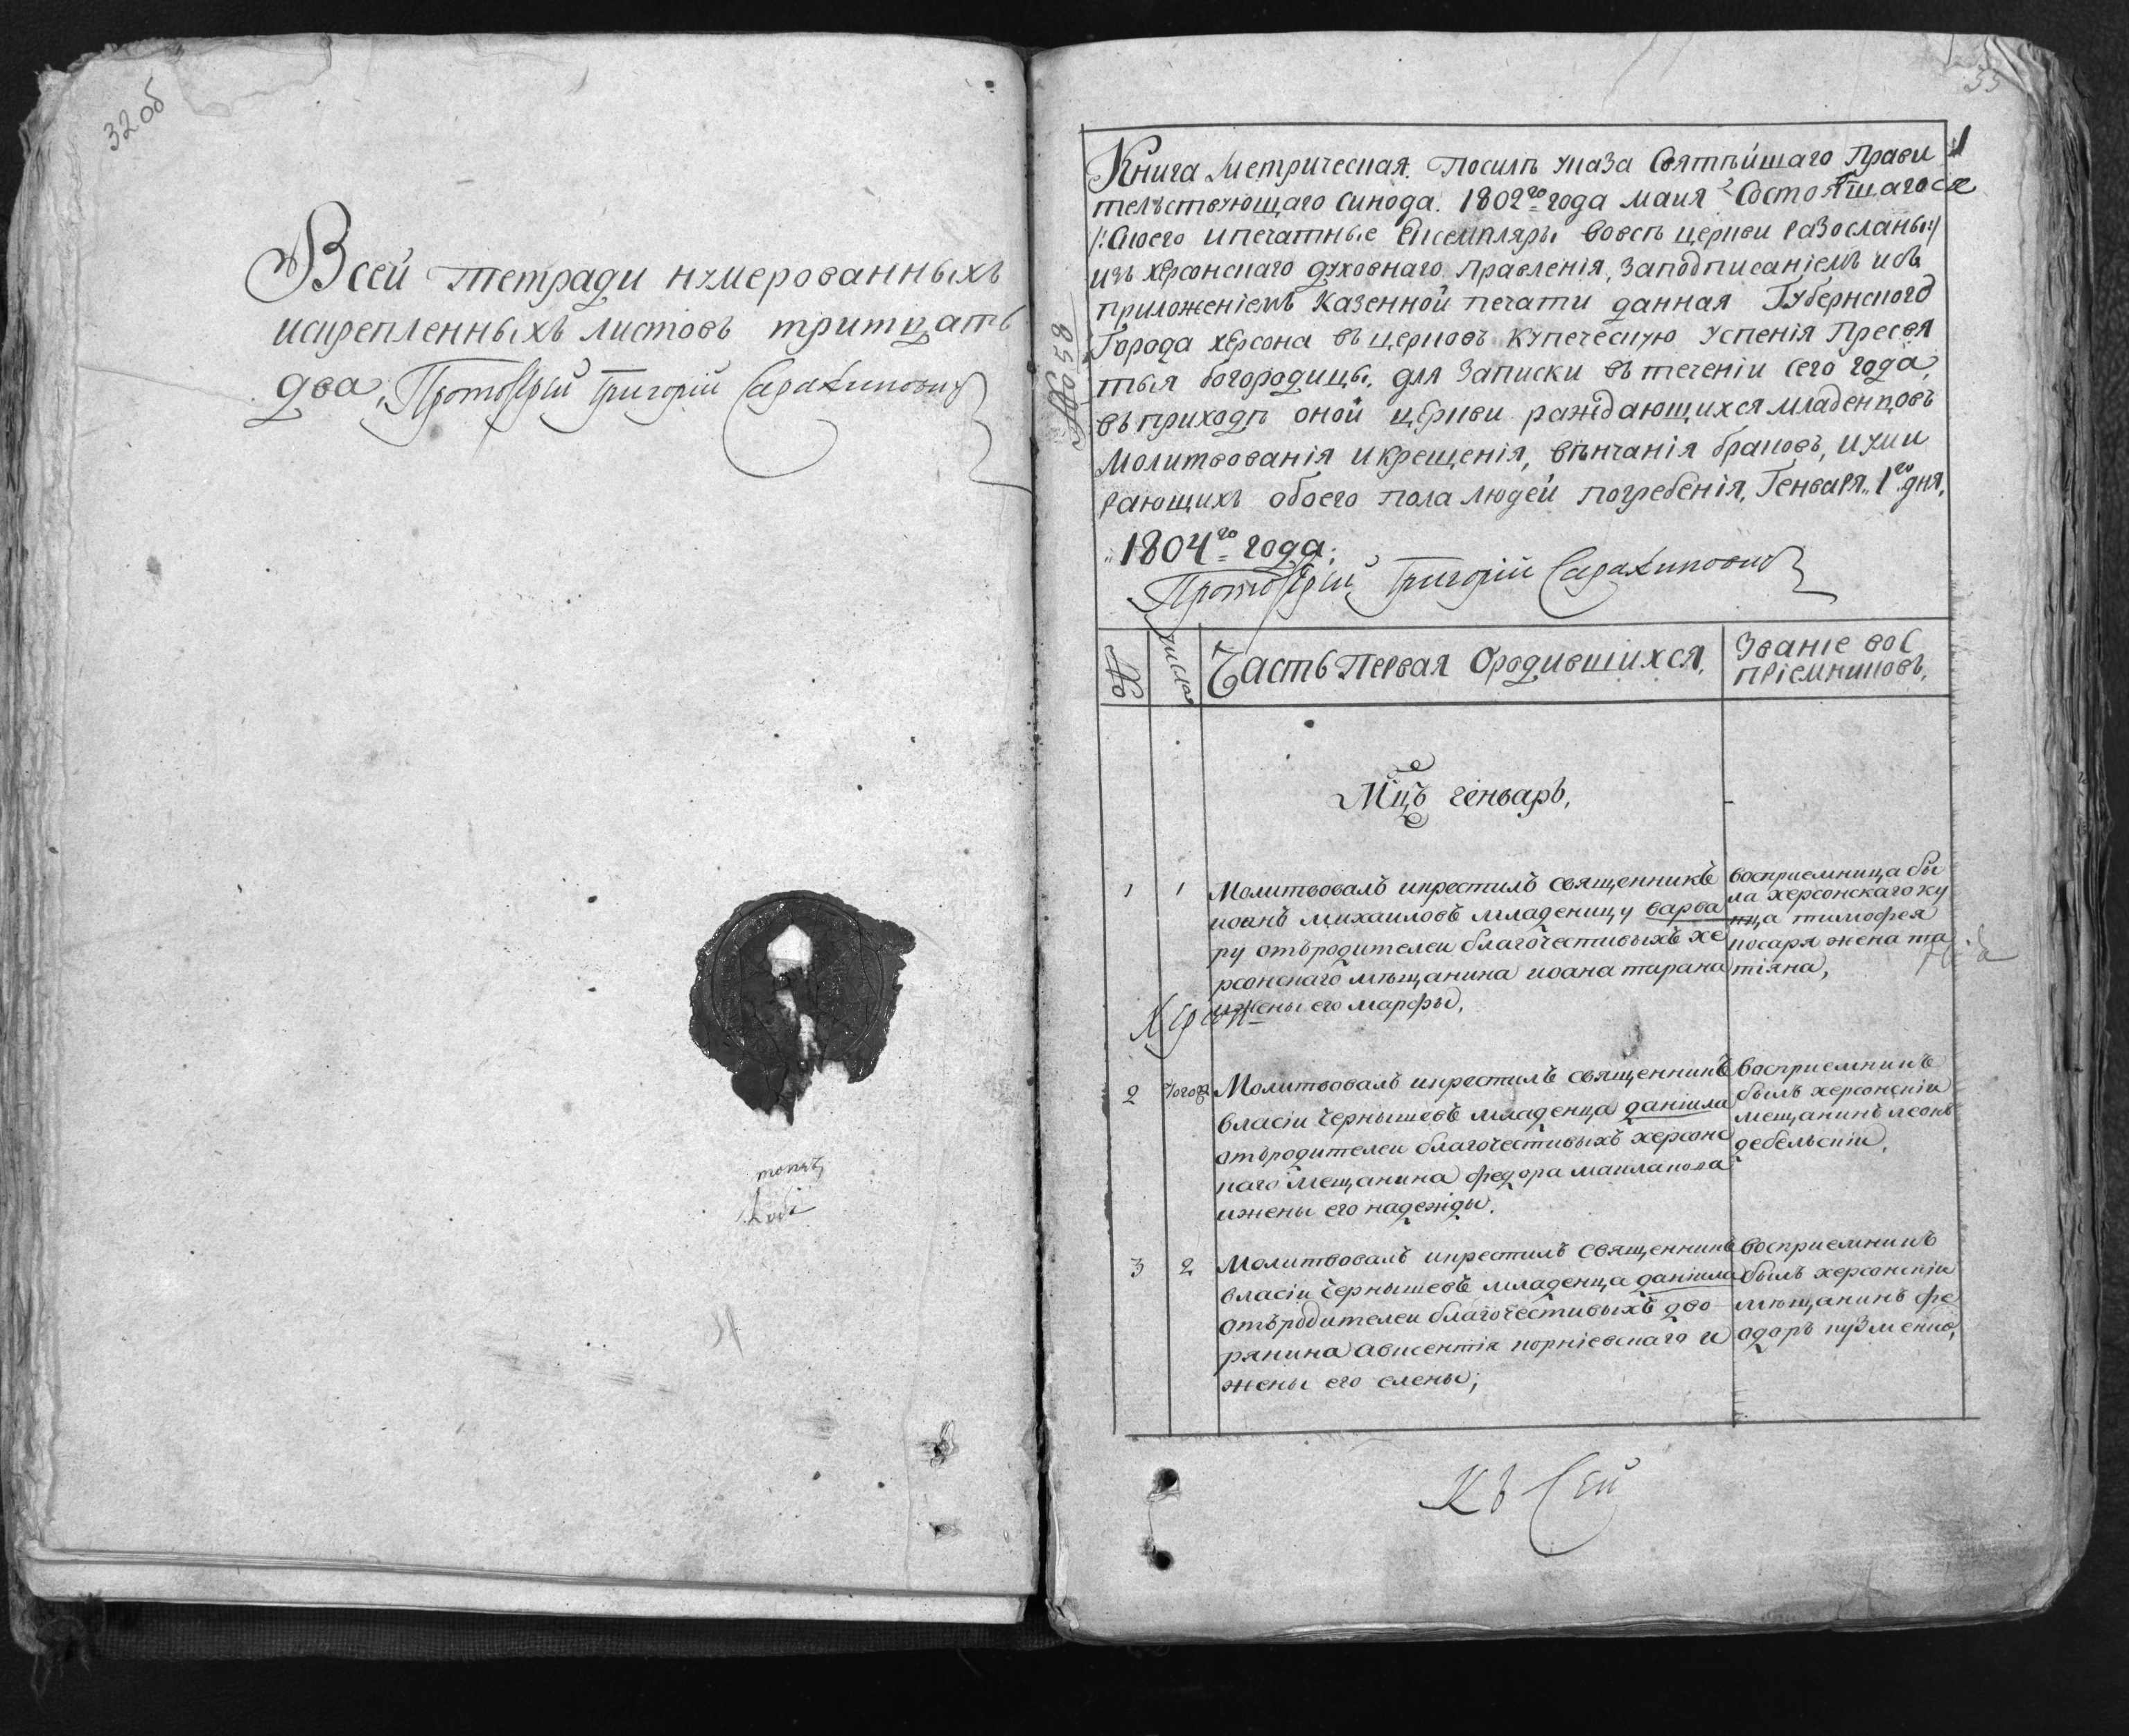 32 об
Всей тетради нумерованныхъ
искрепленныхъ листовъ тритцать
два, Протоіерей Григорій
33
1
Книга Метрическая. Посилѣ указа Святѣйшаго Прави
тельствующаго синода. 1802го года маия Состоявшагося
/:Скоего ипечатные Екземпляры вовсѣ церкви разосланы:/
изъ херсонскаго духовнаго Правленія, заподписаніемъ исъ
приложеніемъ Казенной печати данная Губернского
Города херсона въ церковь Купеческую Успенія Пресвя
тыя богородицы, для Записки въ теченіи сего года,
въ приходѣ оной церкви раждающихся младенцовъ
молитвованія икрещенія, вѣнчанія браковъ, иуми
рающихъ обоего пола людей погребенія, Генваря 1го дня,
1804го года;
Протоіерей Григорій
№ 58
№
числа
Часть Первая Ородившихся,
Званіе вос
пріемниковъ,
Мцъ генварь,
1
1
Молитвовалъ икрестилъ священникъ
иоанъ михаиловъ младеницу варва
ру отъродителеи благочестивыхъ хе
рсонскаго мѣщанина иоана тарана
ижены его марфы,
восприемница бы
ла херсонскаго ку
пца тимофея
косаря жена та
тіяна,
2
Тогож
Молитвовалъ икрестилъ священникъ
власіи чернышевъ младенца даніила
отъродителеи благочестивыхъ херсонс
каго мещанина федора маиланова
ижены его надежды.
восприемникъ
былъ херсонскіи
мещанинъ леонъ
дебельскіи,
3
2
Молитвовалъ икрестилъ священникъ
власіи чернышевъ младенца даніила
отъродителеи благочестивыхъ дво
рянина авксентія корніевскаго и
жены его елены;
восприемникъ
былъ херсонскіи
мѣщанинъ фе
одоръ кузменко,
Къ Сей